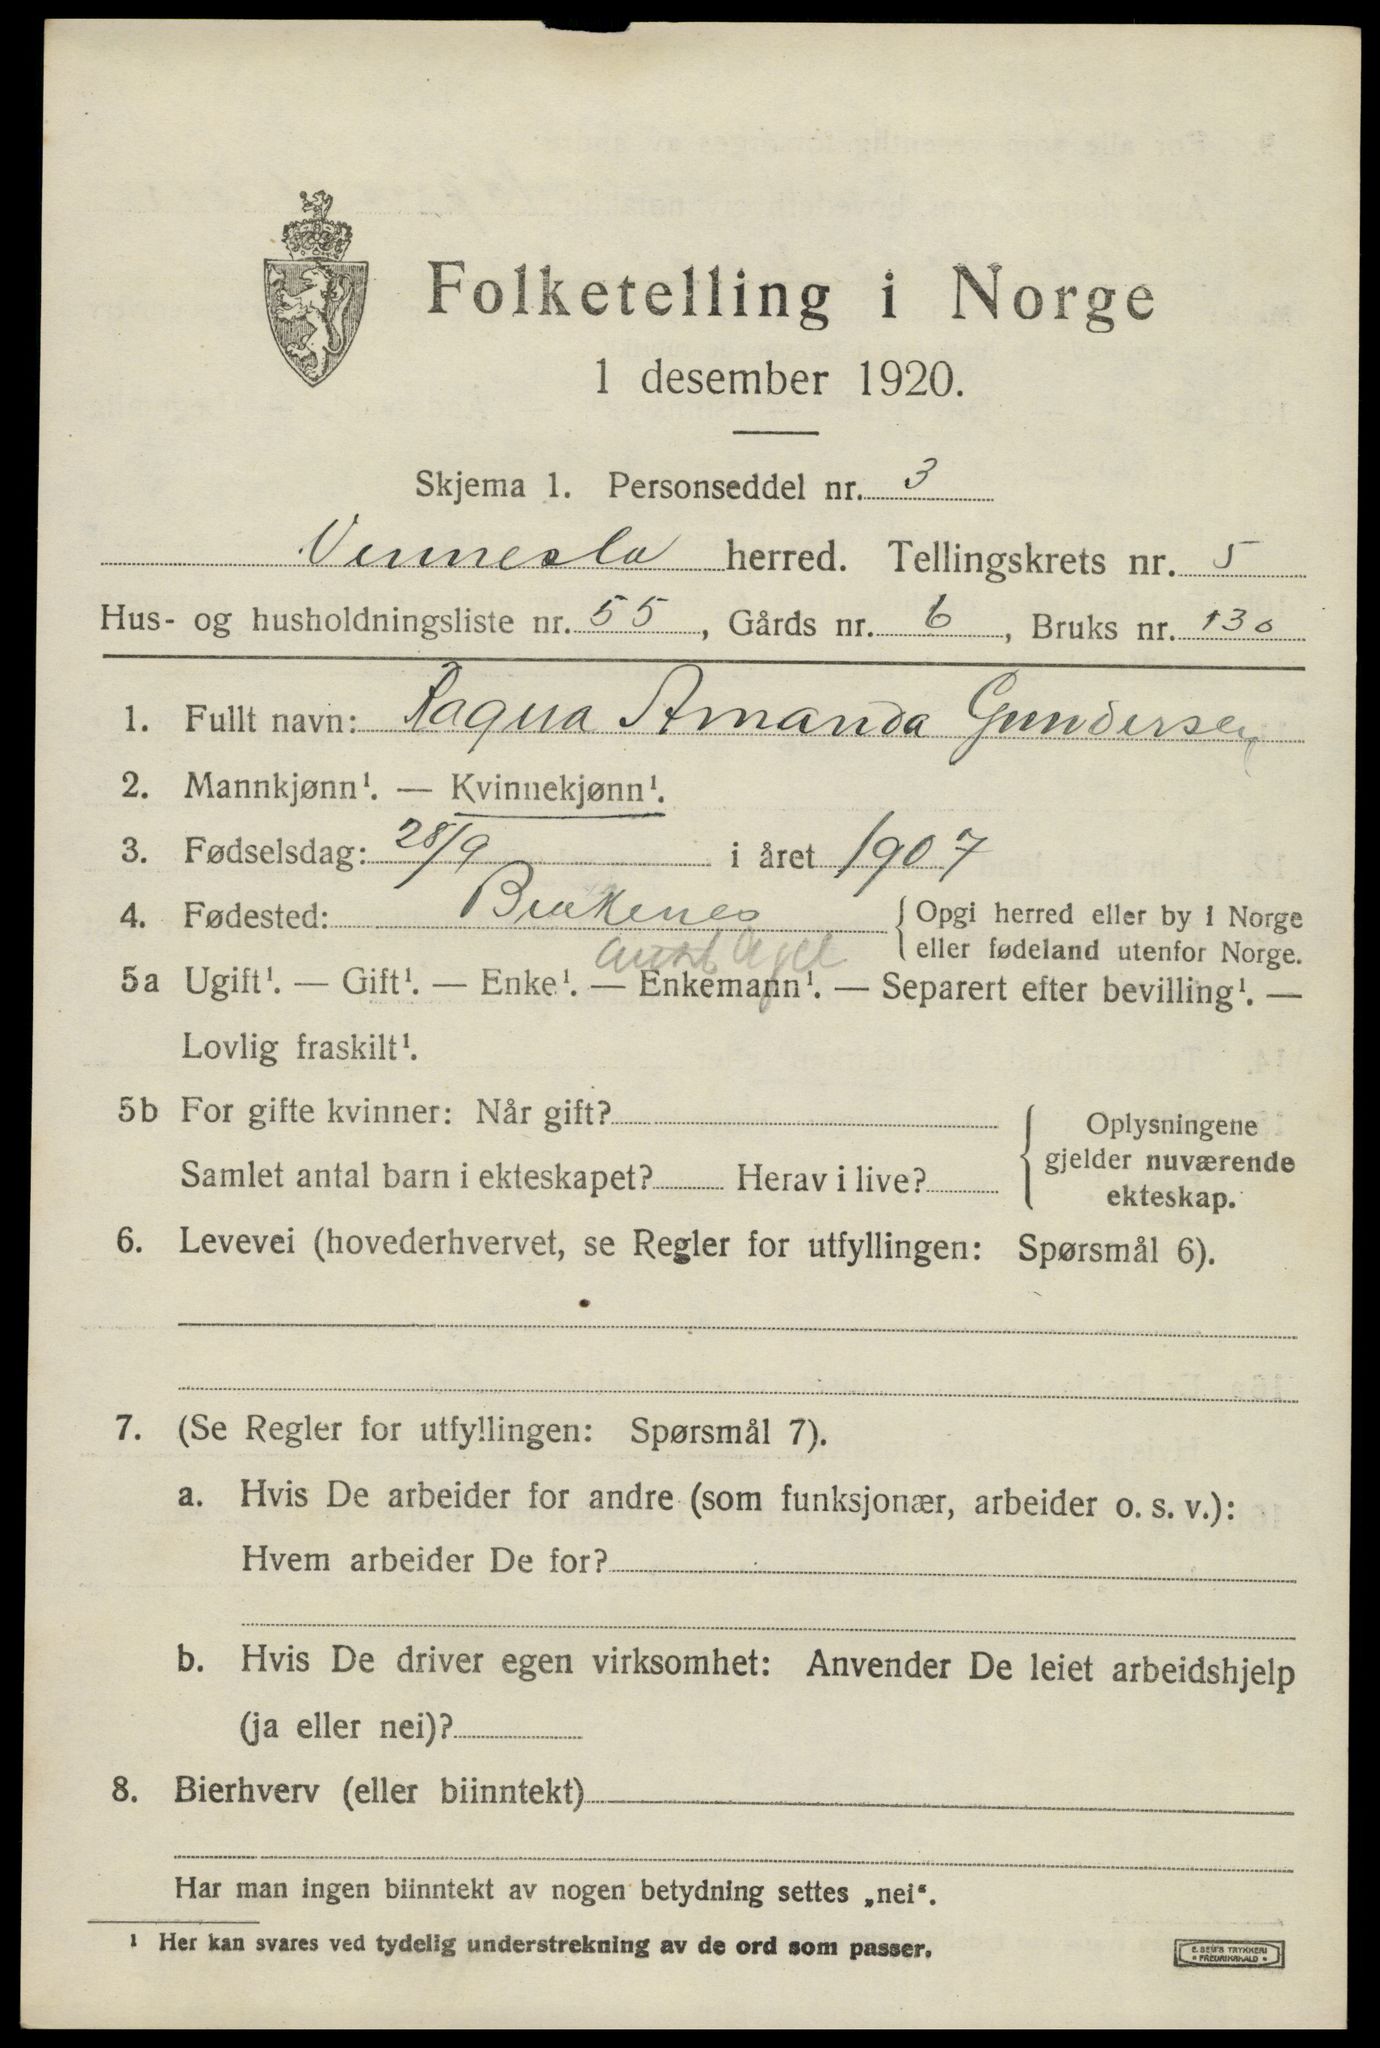 Folketelling i Norge
1 desember 1920.
Skjema 1. Personseddel nr. 3
Vennesla herred. Tellingskrets nr. 5
Hus- og husholdningsliste nr. 55, Gårds nr. 6, Bruks nr. 130
1. Fullt navn: Ragna Amanda Gundersen
2. Mannkjønn¹. — Kvinnekjønn¹.
3. Fødselsdag: 28/9 i året 1907
4. Fødested: Birkenes { Opgi herred eller by i Norge
eller fødeland utenfor Norge.
Aust Agd
5a Ugift¹. — Gift¹. — Enke¹. — Enkemann¹. — Separert efter bevilling¹. —
Lovlig fraskilt¹.
5b For gifte kvinner: Når gift?
Samlet antal barn i ekteskapet? Herav i live?
Oplysningene
gjelder nuværende
ekteskap.
6. Levevei (hovederhvervet, se Regler for utfyllingen: Spørsmål 6).
7. (Se Regler for utfyllingen: Spørsmål 7).
a. Hvis De arbeider for andre (som funksjonær, arbeider o. s. v.):
Hvem arbeider De for?
b. Hvis De driver egen virksomhet: Anvender De leiet arbeidshjelp
(ja eller nei)?
8. Bierhverv (eller biinntekt)
Har man ingen biinntekt av nogen betydning settes „nei“.
¹ Her kan svares ved tydelig understrekning av de ord som passer.
E. SEM'S TRYKKERI
FREDRIKSHALD